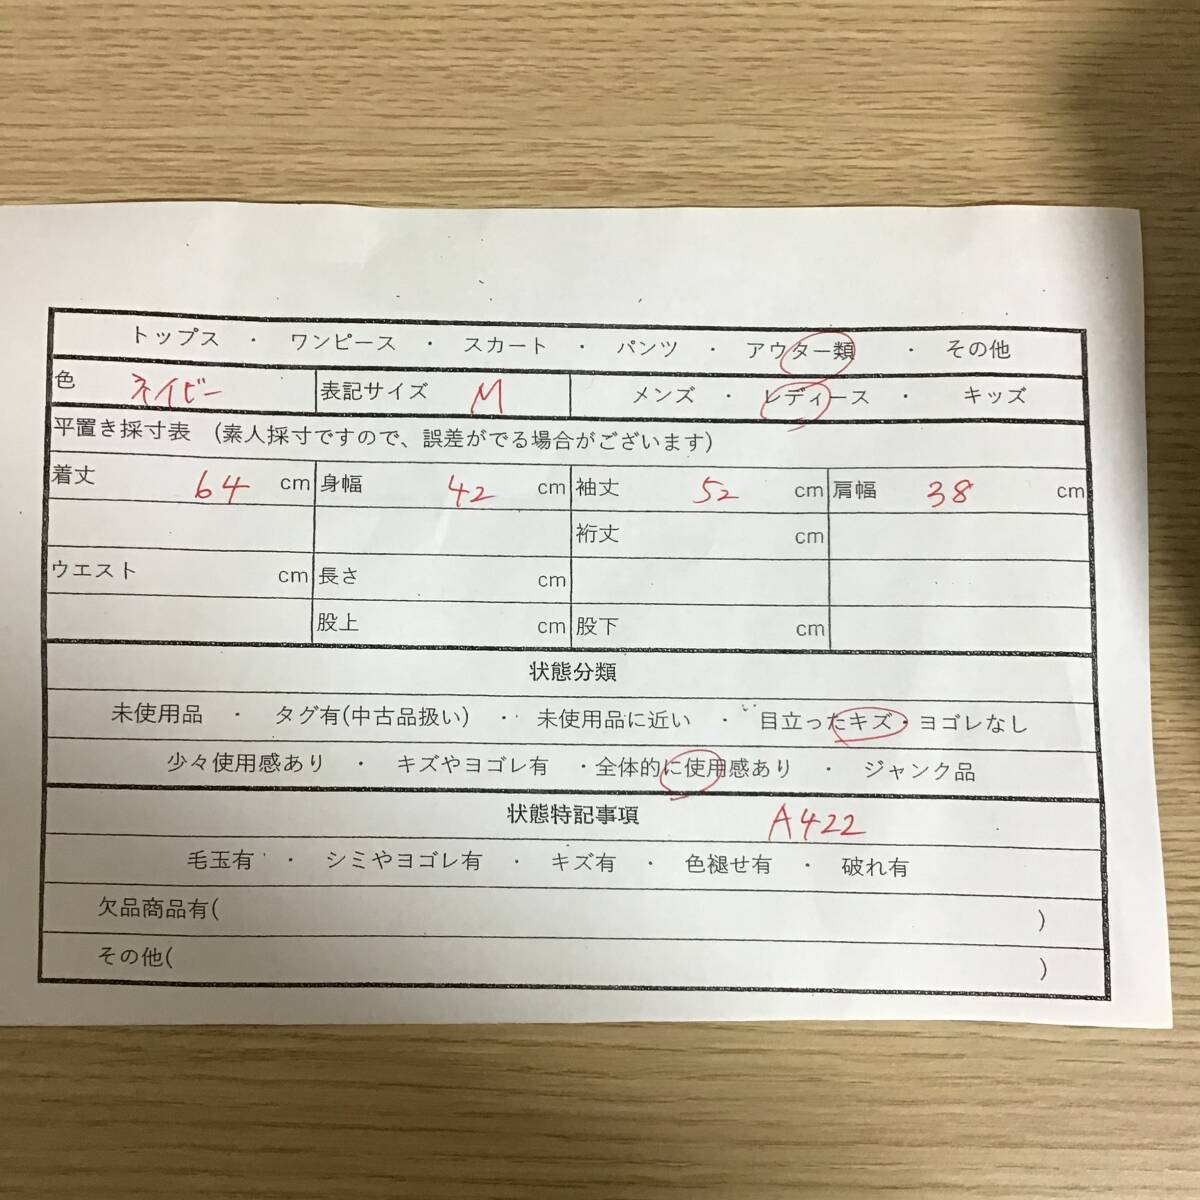 トップス ・ ワンピース ・ スカート ・ パンツ ・ アウター類 ・ その他
色 ネイビー 表記サイズ M メンズ ・ レディース ・ キッズ
平置き採寸表 (素人採寸ですので、誤差がでる場合がございます)
着丈 64 cm 身幅 42 cm 袖丈 52 cm 肩幅 38 cm
裄丈 cm
ウエスト cm 長さ cm
股上 cm 股下 cm
状態分類
未使用品 ・ タグ有(中古品扱い) ・ 未使用品に近い ・ 目立ったキズ・ヨゴレなし
少々使用感あり ・ キズやヨゴレ有 ・全体的に使用感あり ・ ジャンク品
状態特記事項 A422
毛玉有 ・ シミやヨゴレ有 ・ キズ有 ・ 色褪せ有 ・ 破れ有
欠品商品有( )
その他( )